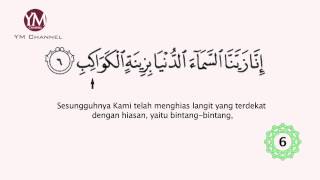 YM
YM CHANNEL
إِنَّا زَيَّنَّا ٱلسَّمَآءَ ٱلدُّنْيَا بِزِينَةٍ ٱلْكَوَاكِبِ ٦
Sesungguhnya Kami telah menghias langit yang terdekat
dengan hiasan, yaitu bintang-bintang,
6